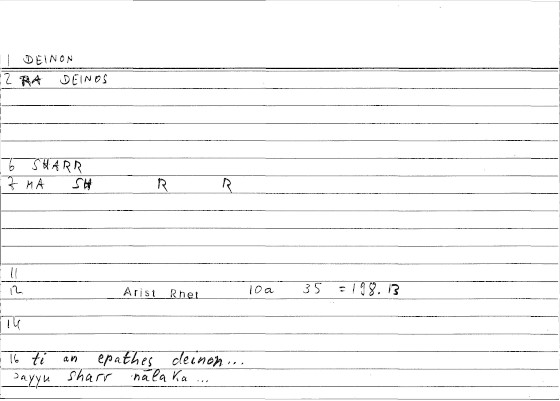 1 DEINON
2 RA DEINOS
6 SHARR
7 MA SH R R
11
12 Arist Rhet 10a 35 = 198.13
14
16 ti an epathes deinon...
ayyu sharr nālaka...